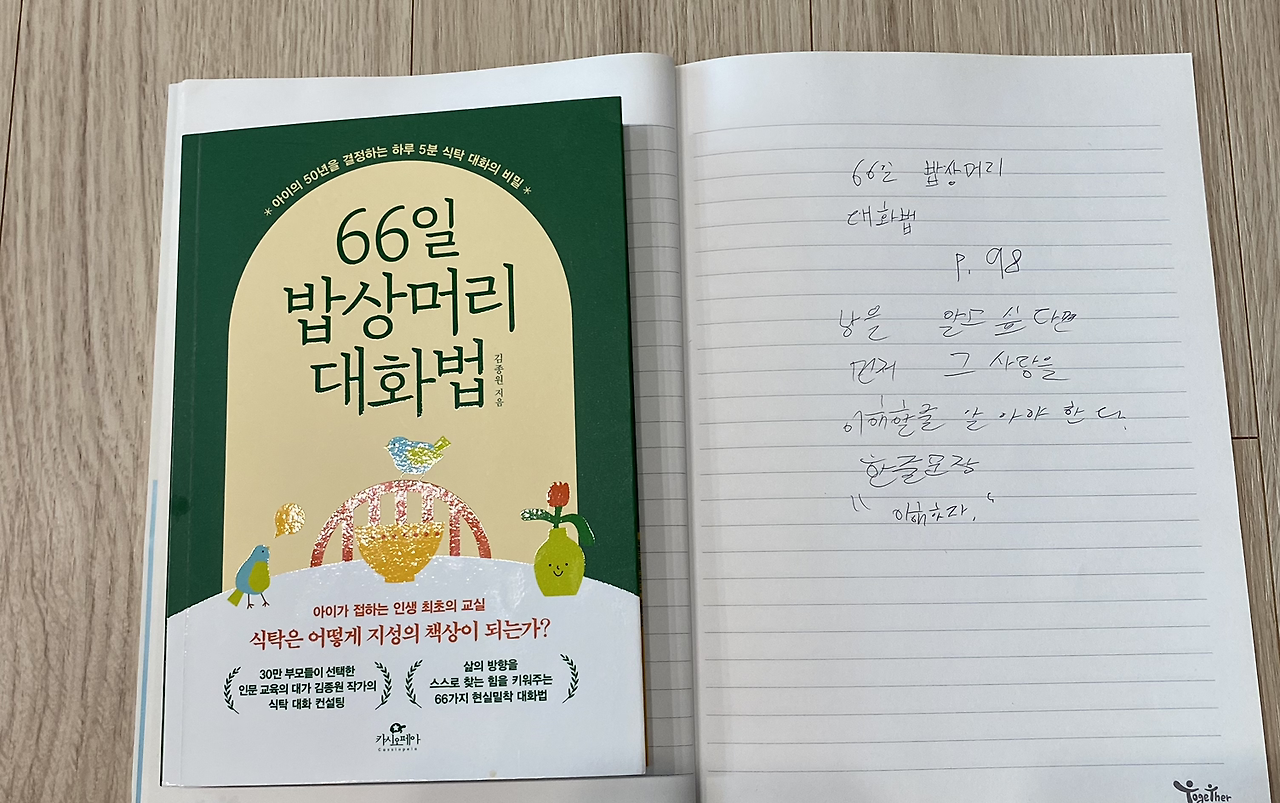 *아이의 50년을 결정하는 하루 5분 식탁 대화의 비밀*
66일
밥상머리
대화법
김종원 지음
아이가 접하는 인생 최초의 교실
식탁은 어떻게 지성의 책상이 되는가?
30만 부모들이 선택한
인문 교육의 대가 김종원 작가의
식탁 대화 컨설팅
삶의 방향을
스스로 찾는 힘을 키워주는
66가지 현실밀착 대화법
카시오페아
Cassiopeia
66일 밥상머리
대화법
P. 98
알고 싶다면
먼저 그 사람을
이해할줄 알아야 한다.
한글문장
"이해하다."
Together